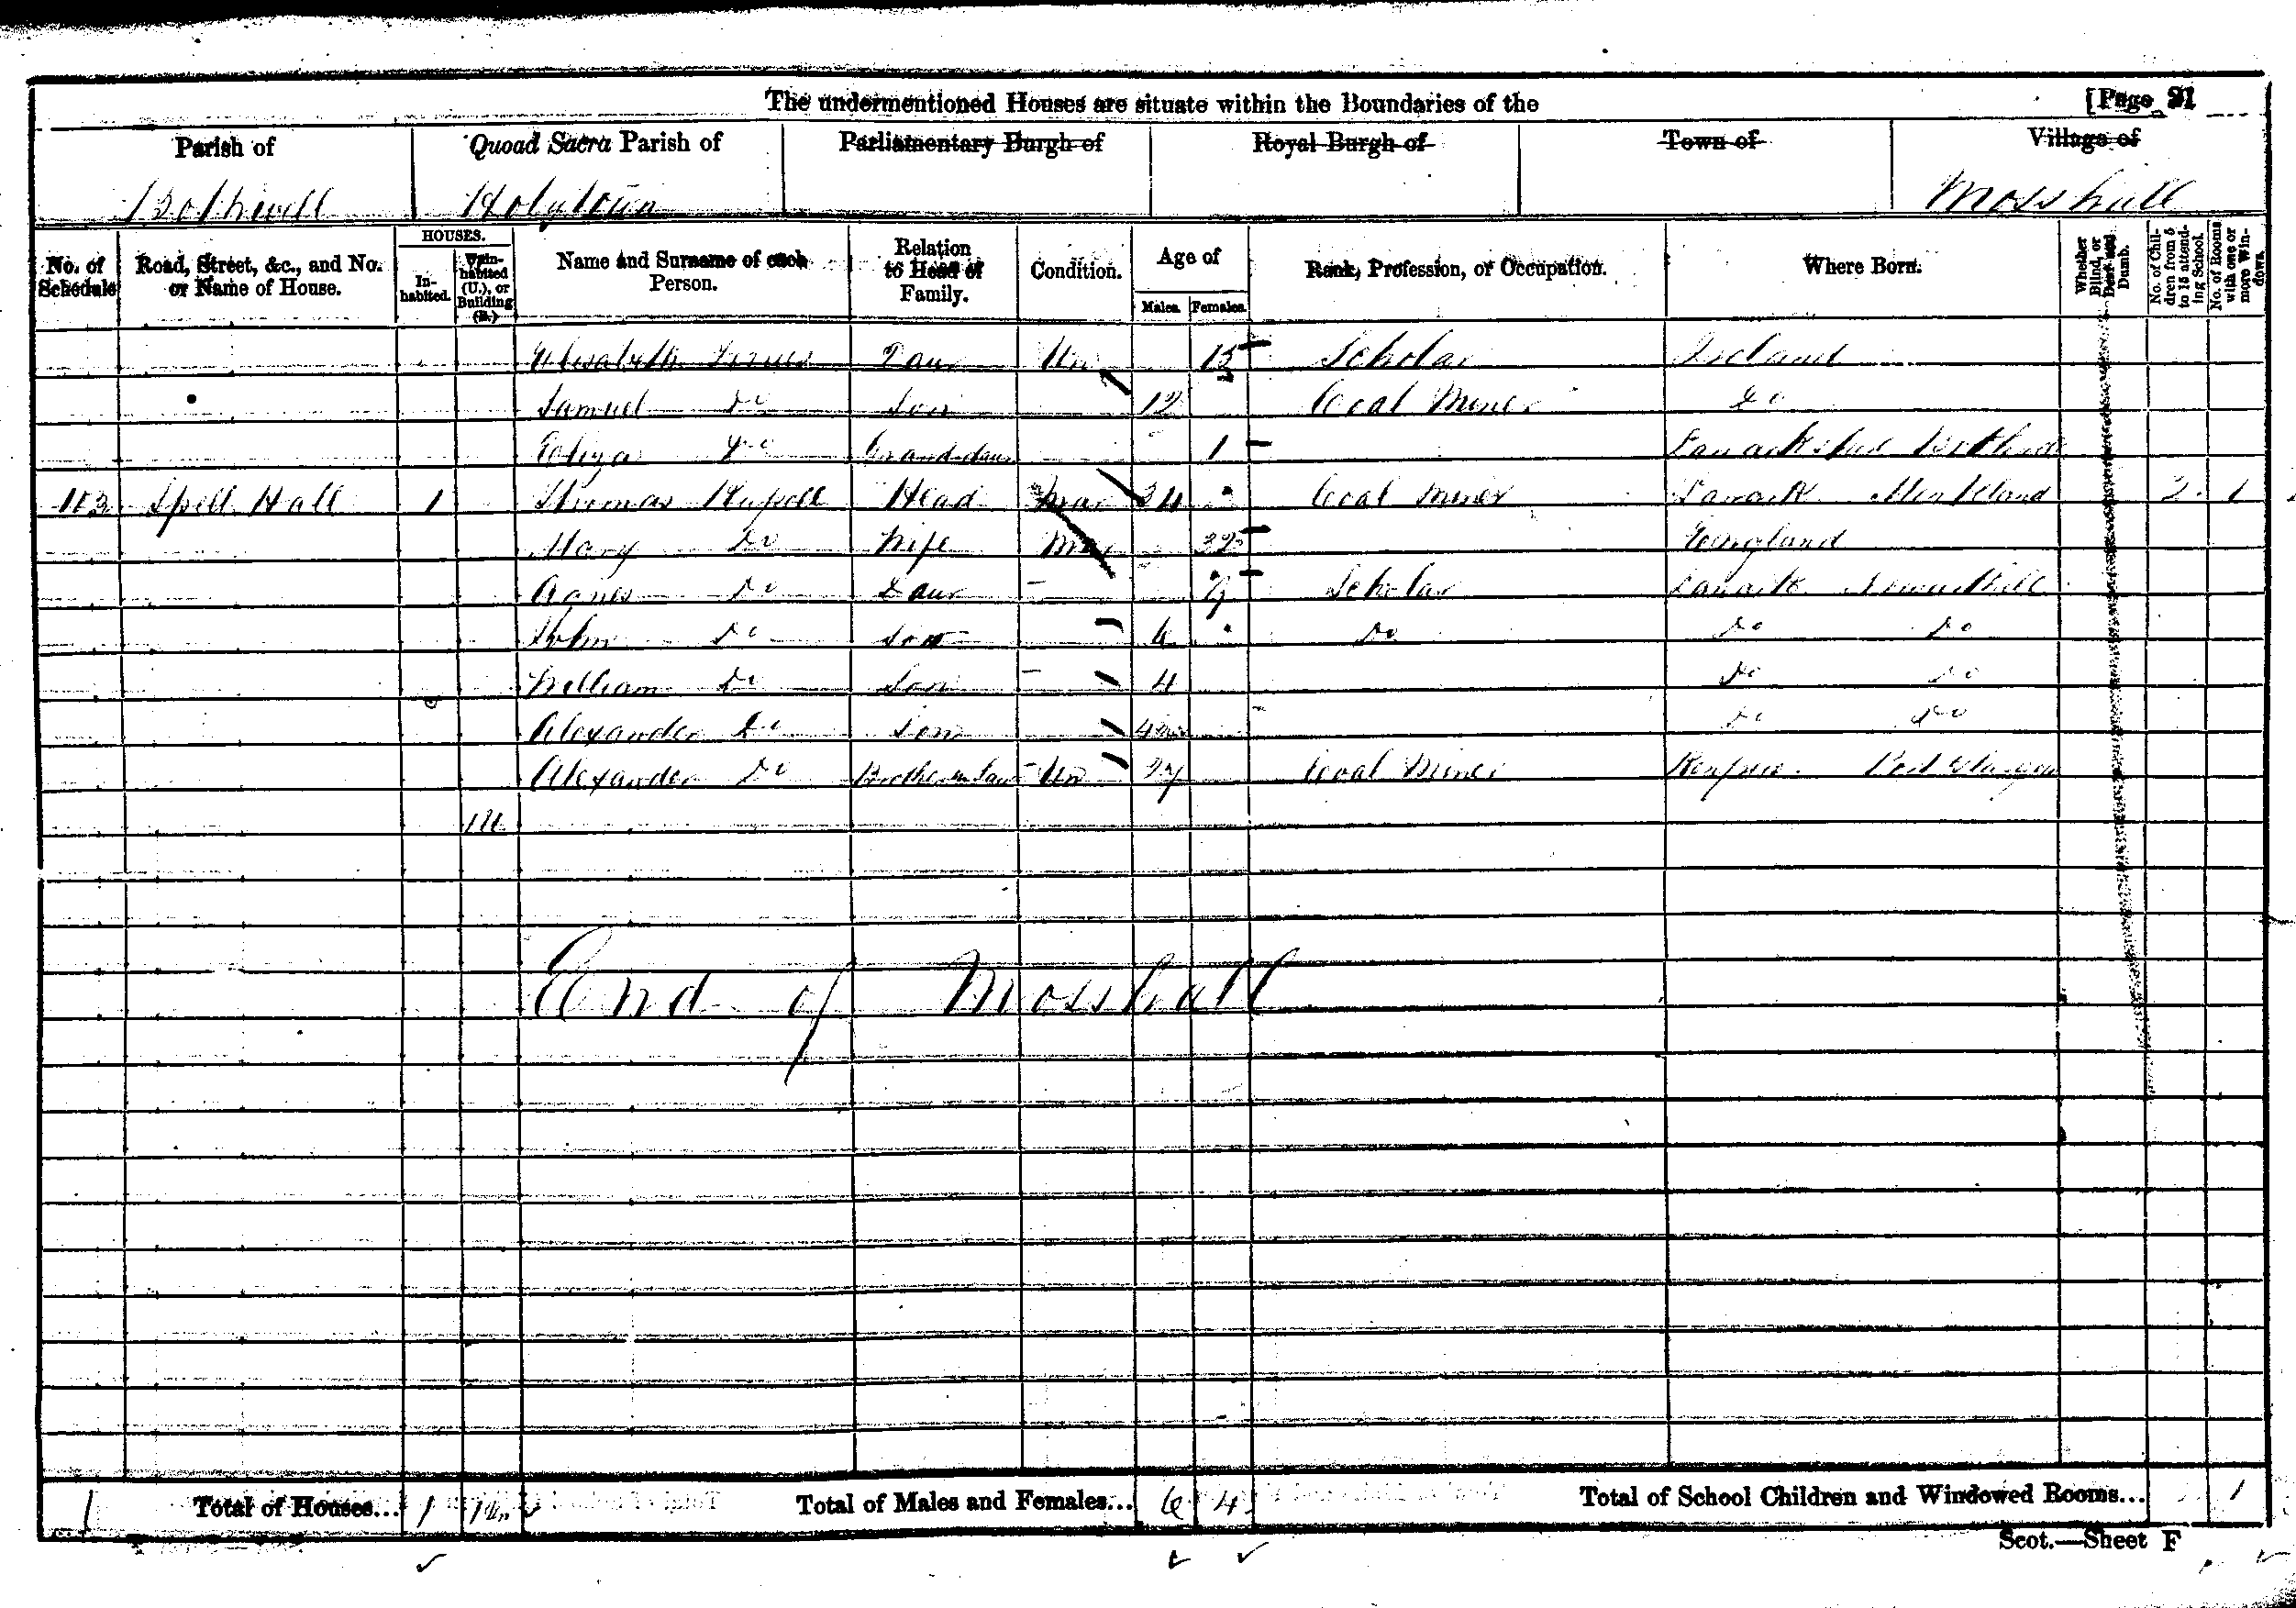 The undermentioned Houses are situate within the Boundaries of the
[Page 21
Parish of Bothwell
Quoad Sacra Parish of Holytown
Parliamentary Burgh of
Royal Burgh of
Town of
Village of Mosshall
No. of Schedule
Road, Street, &c., and No. or Name of House.
HOUSES.
In-habited.
Unin-habited (U.), or Building (B.)
Name and Surname of each Person.
Relation to Head of Family.
Condition.
Age of
Males. Females.
Rank, Profession, or Occupation.
Where Born.
Whether Blind, or Deaf and Dumb.
No. of Chil-dren from 5 to 15 attend-ing School.
No. of Rooms with one or more Win-dows.
Elisabeth Daur Un Scholar Ireland
Samuel Do Son 12 Coal Miner Do
Eliza Do Granddaur 1 Lanarkshire
113 Spell Hall 1 Thomas Russell Head Mar 34 Coal Miner Lanark Monkland 2 1
Mary Do Wife Mar 32 England
Agnes Do Daur 7 Scholar Lanark
John Do Son 6 Do Do Do
William Do Son 4 Do Do
Alexander Do Son Do Do
Alexander Do Brother in law Un 27 Coal Miner Renfrew Port Glasgow
1 U
End of Mosshall
1 Total of Houses... 1 1 U
Total of Males and Females... 6 4
Total of School Children and Windowed Rooms... 1
Scot.—Sheet F